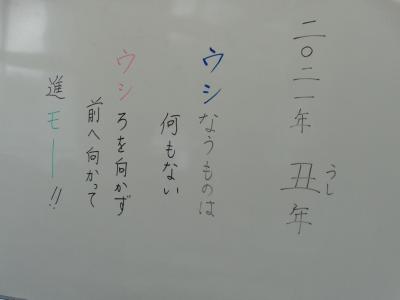 二〇二一年 丑年
うし
ウシなうものは
何もない
ウシろを向かず
前へ向かって
進モー!!